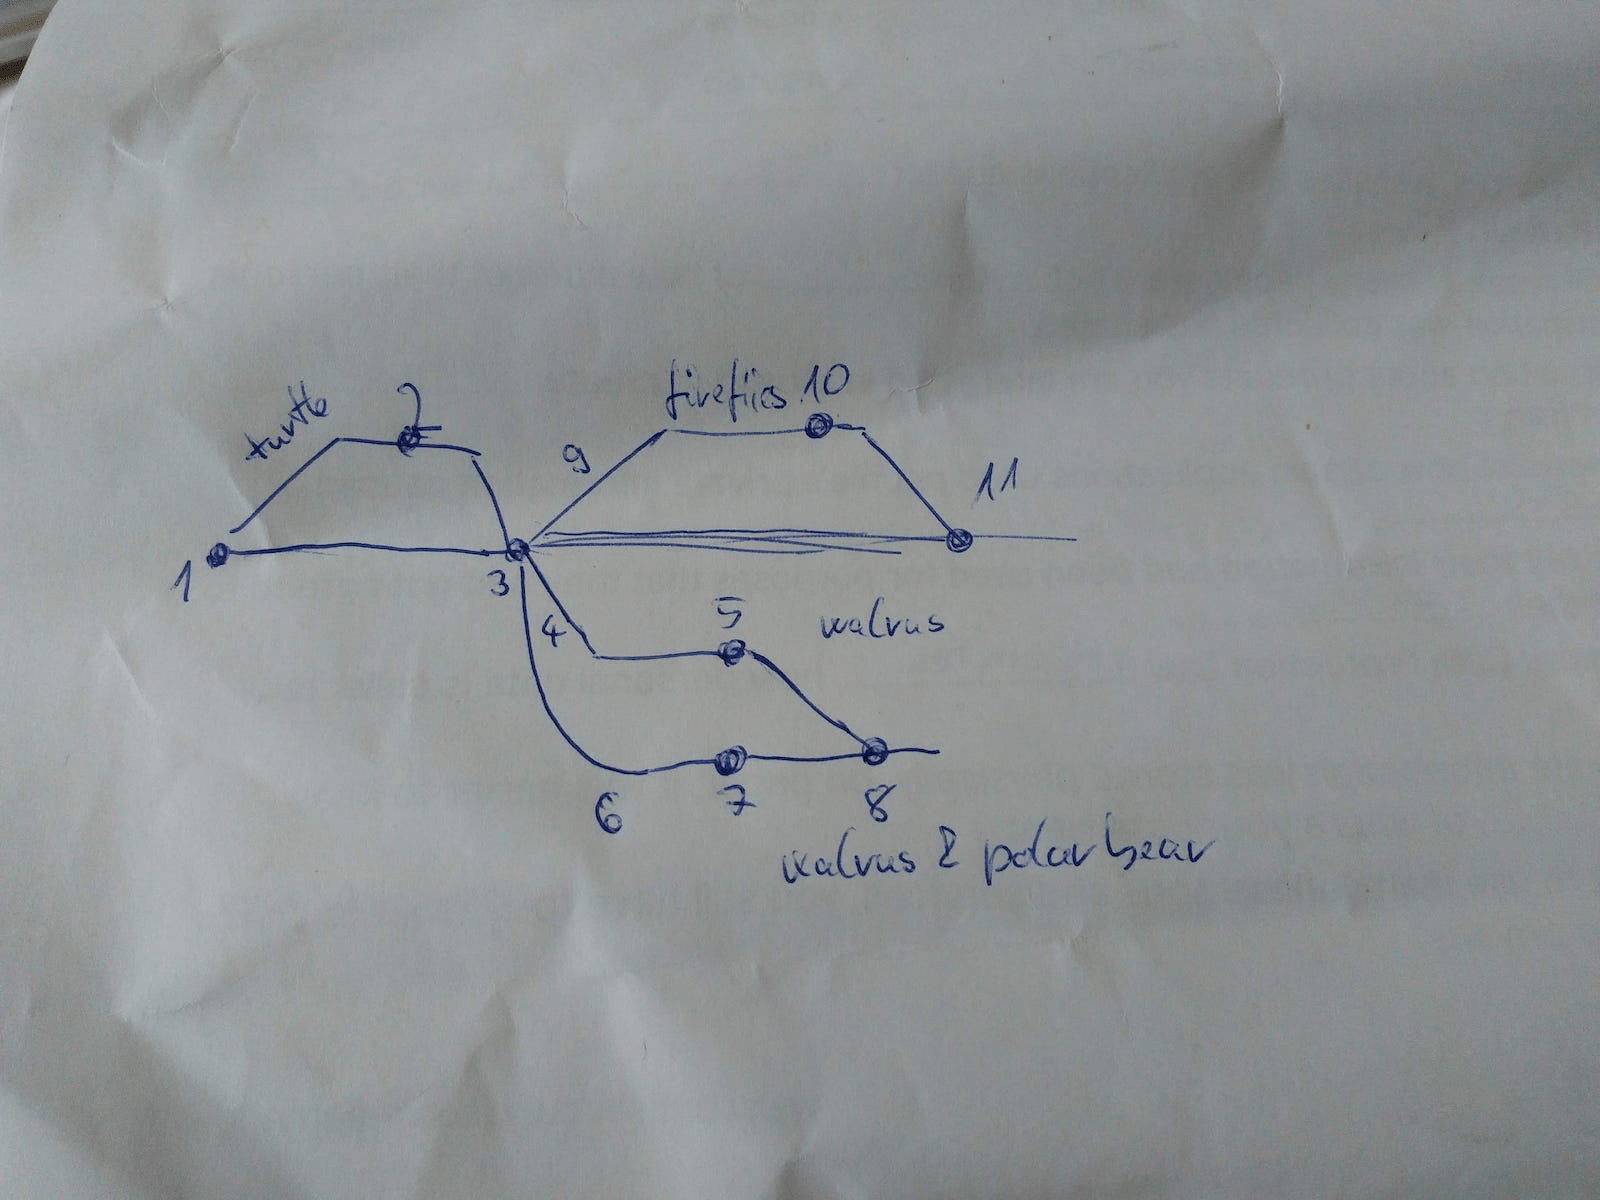 turtle
2
fireflies 10
9
11
1
3
4
5
walrus
6
7
8
walrus & polar bear